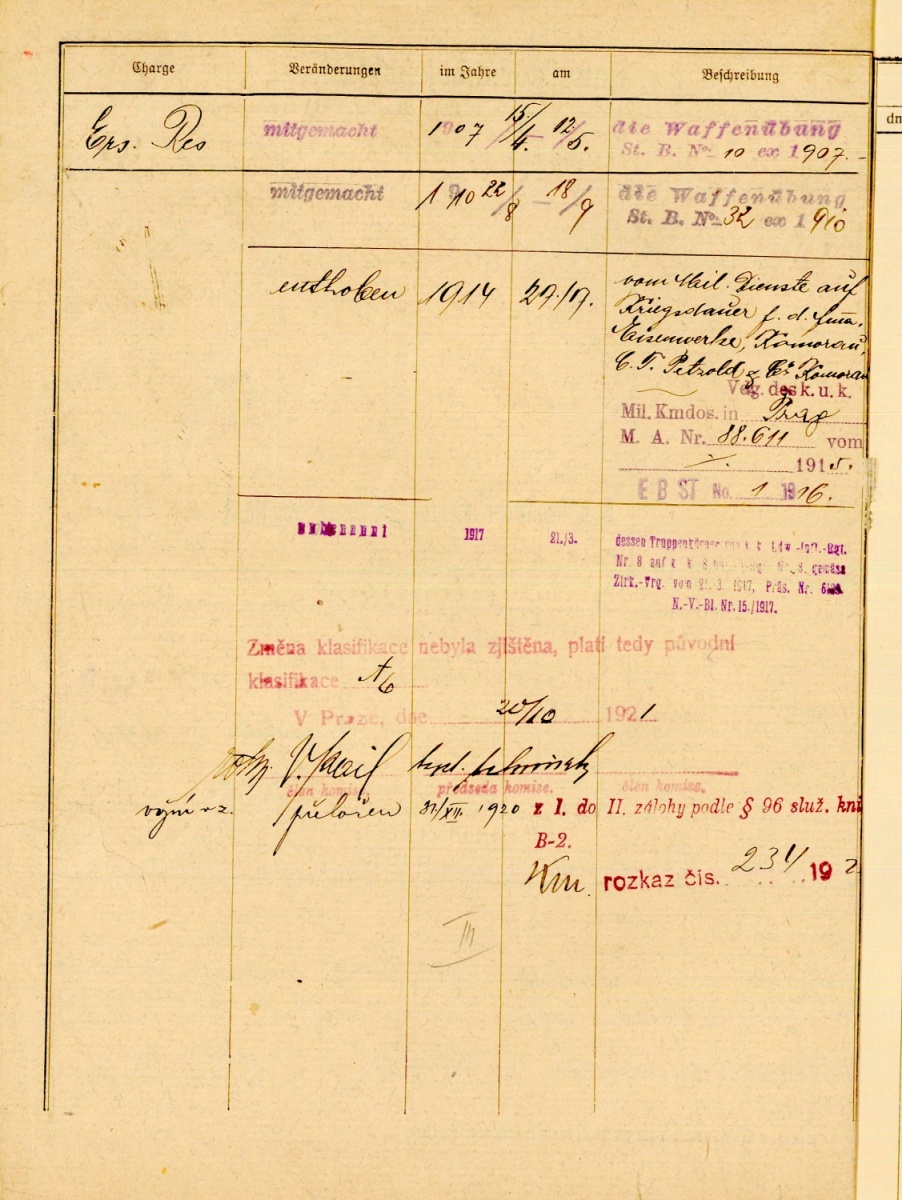 Charge Veränderungen im Jahre am Beschreibung
dn
Ers. Res mitgemacht 1907 15/4. 12/5. die Waffenübung
St. B. No. 10 ex 1907.
mitgemacht 1910 22/8 – 18/9 die Waffenübung
St. B. No. 32 ex 1910
enthoben 1914 27./7. vom Mil. Dienste auf
Kriegsdauer f. d. Fma.
Eisenwerke, Komorau,
C. T. Petzold &amp; Co Komorau
Vdg. des k. u. k.
Mil. Kmdos. in Prag
M. A. Nr. 88.611 vom
1915.
E B ST No. 1 1916.
1917 21./3. dessen Truppenkörper k. k. Ldw.-Inft.-Rgt.
Nr. 8 auf k. k. Nr. 8. gemäss
Zirk.-Vrg. vom 21. 3. 1917, Präs. Nr.
N.-V.-Bl. Nr. 15./1917.
Změna klasifikace nebyla zjištěna, platí tedy původní
klasifikace A6
V Praze, dne 20/10 1921
člen komise. předseda komise. člen komise.
přeložen 31/XII. 1920 z I. do II. zálohy podle § 96 služ. kni
B-2.
Km. rozkaz čís. 234 192
III